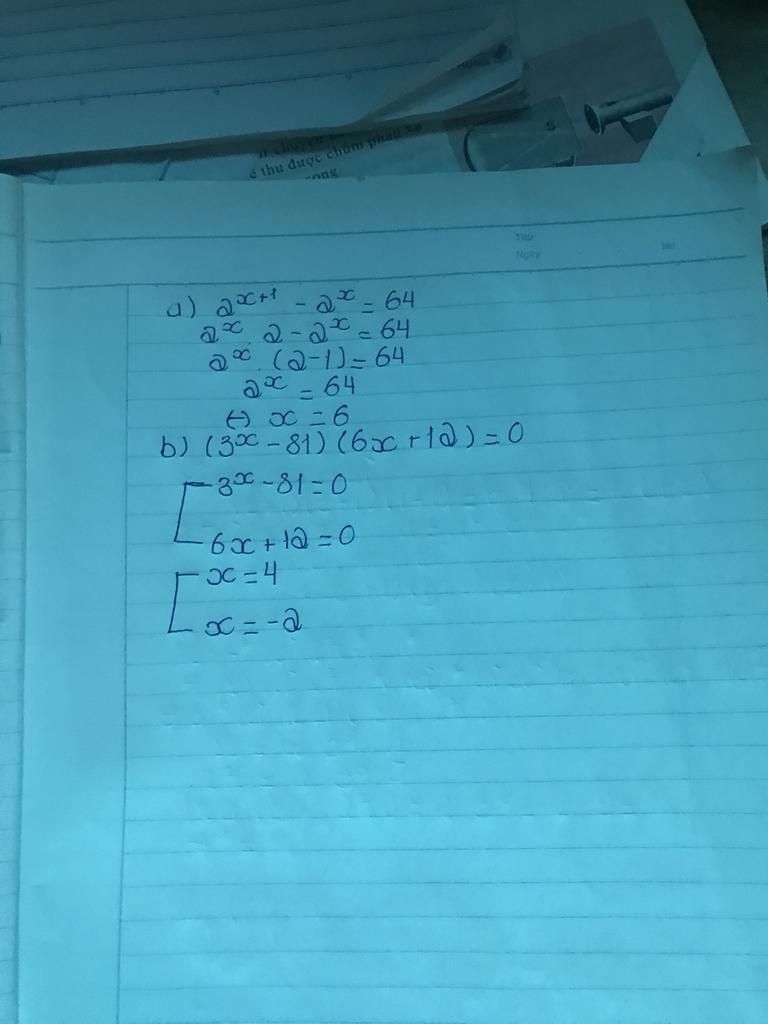 thu được chùm phản xạ
Thứ
Ngày
No
a) 2^{x+1} - 2^x = 64
2^x . 2 - 2^x = 64
2^x . (2-1) = 64
2^x = 64
(-) x = 6
b) (3^x - 81) (6x + 12) = 0
3^x - 81 = 0
6x + 12 = 0
x = 4
x = -2